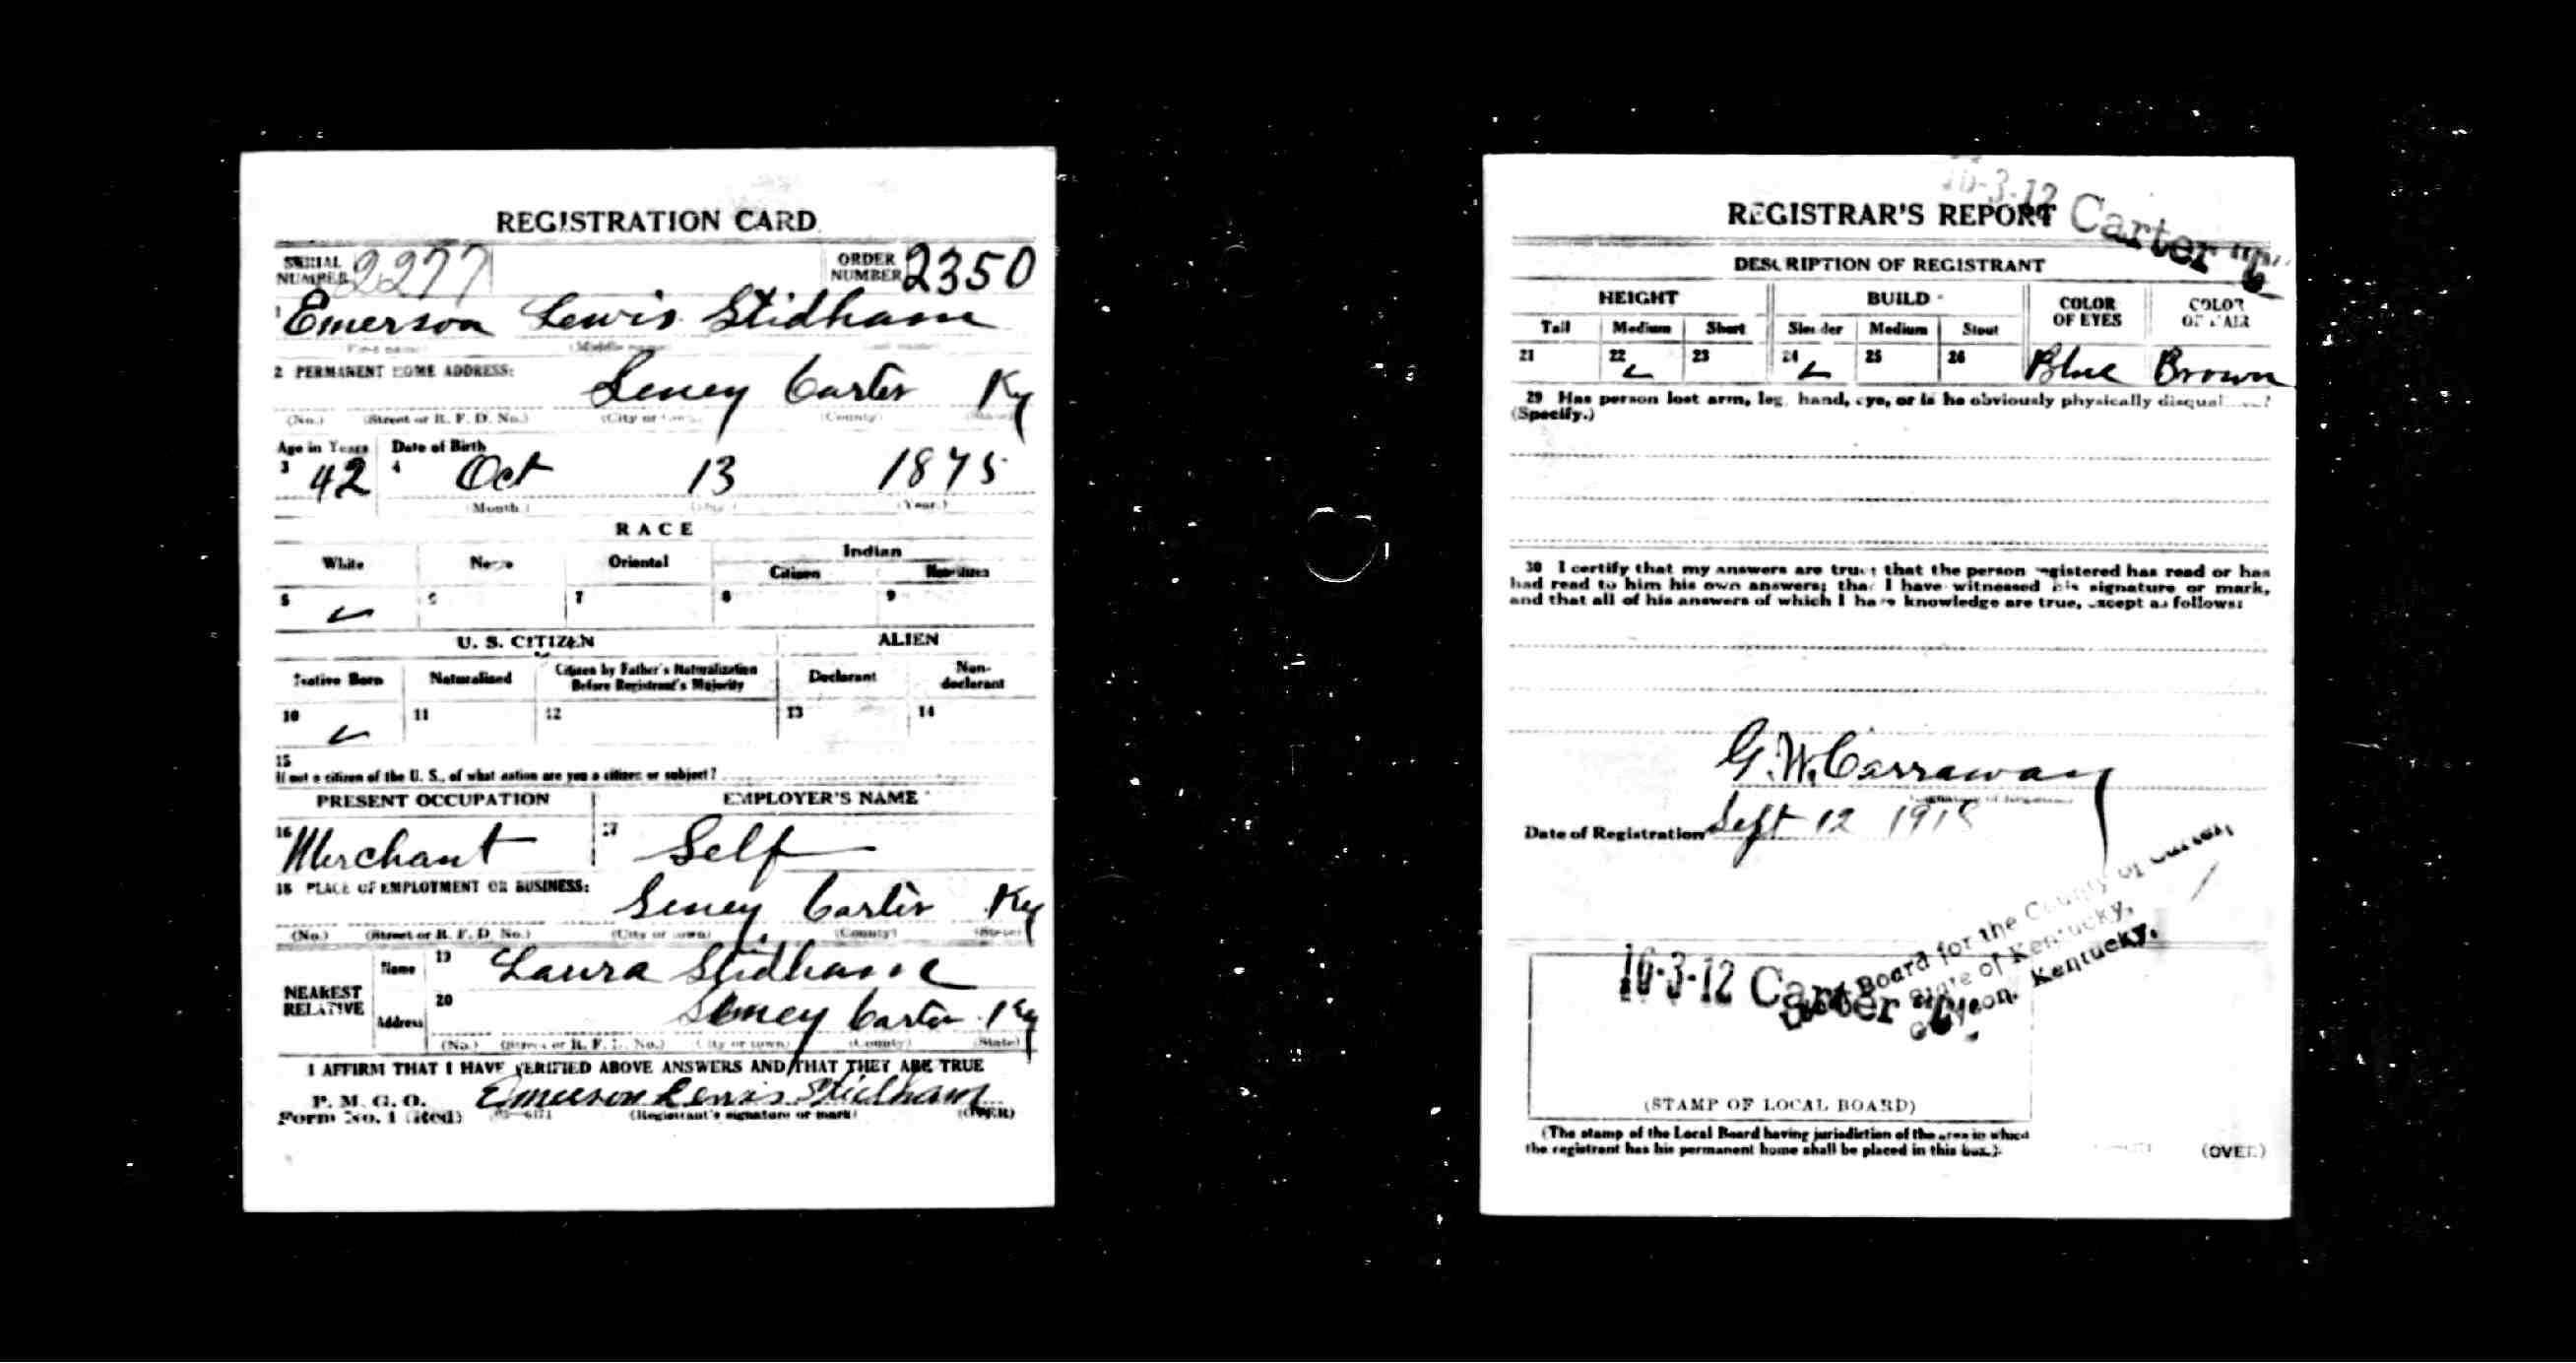 REGISTRATION CARD
SERIAL NUMBER 2277 ORDER NUMBER 2350
1 Emerson Lewis Stidham
(First name) (Middle name) (Last name)
2 PERMANENT HOME ADDRESS:
Carter Ky
(No.) (Street or R. F. D. No.) (City or town) (County) (State)
Age in Years Date of Birth
3 42 4 Oct 13 1875
(Month.) (Day.) (Year.)
RACE
White Negro Oriental Indian
Citizen Noncitizen
5 ✓ 6 7 8 9
U. S. CITIZEN ALIEN
Native Born Naturalized Citizen by Father's Naturalization Before Registrant's Majority Declarant Non-declarant
10 ✓ 11 12 13 14
15
If not a citizen of the U. S., of what nation are you a citizen or subject?
PRESENT OCCUPATION EMPLOYER'S NAME
16 Merchant 17 Self
18 PLACE OF EMPLOYMENT OR BUSINESS:
Carter Ky
(No.) (Street or R. F. D. No.) (City or town) (County) (State)
NEAREST RELATIVE
Name 19 Laura Stidham
Address 20 Carter Ky
(No.) (Street or R. F. D. No.) (City or town) (County) (State)
I AFFIRM THAT I HAVE VERIFIED ABOVE ANSWERS AND THAT THEY ARE TRUE
P. M. G. O.
Form No. 1 (Red) Emerson Lewis Stidham
(Registrant's signature or mark) (OVER)
16-3-12 Carter
REGISTRAR'S REPORT
DESCRIPTION OF REGISTRANT
HEIGHT BUILD COLOR OF EYES COLOR OF HAIR
Tall Medium Short Slender Medium Stout
21 22 ✓ 23 24 ✓ 25 26 Blue Brown
29 Has person lost arm, leg, hand, eye, or is he obviously physically disqualified?
(Specify.)
30 I certify that my answers are true; that the person registered has read or has
had read to him his own answers; that I have witnessed his signature or mark,
and that all of his answers of which I have knowledge are true, except as follows:
G. W. Carraway
(Signature of Registrar)
Date of Registration Sept 12 1918
Local Board for the County of Carter,
State of Kentucky,
Grayson, Kentucky.
16-3-12 Carter
(STAMP OF LOCAL BOARD)
(The stamp of the Local Board having jurisdiction of the area in which
the registrant has his permanent home shall be placed in this box.)
(OVER)